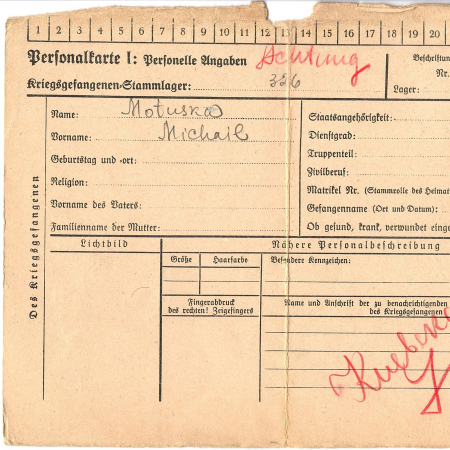 1 2 3 4 5 6 7 8 9 10 11 12 13 14 15 16 17 18 19 20
Personalkarte I: Personelle Angaben Achtung
Beschriftung
Kriegsgefangenen-Stammlager: 326
Nr.
Lager:
Des Kriegsgefangenen
Name: Motuska
Vorname: Michail
Geburtstag und -ort:
Religion:
Vorname des Vaters:
Familienname der Mutter:
Staatsangehörigkeit:
Dienstgrad:
Truppenteil:
Zivilberuf:
Matrikel Nr. (Stammrolle des Heimat
Gefangennahme (Ort und Datum):
Ob gesund, krank, verwundet einge
Lichtbild
Nähere Personalbeschreibung
Größe Haarfarbe
Besondere Kennzeichen:
Fingerabdruck
des rechten! Zeigefingers
Name und Anschrift der zu benachrichtigenden
des Kriegsgefangenen